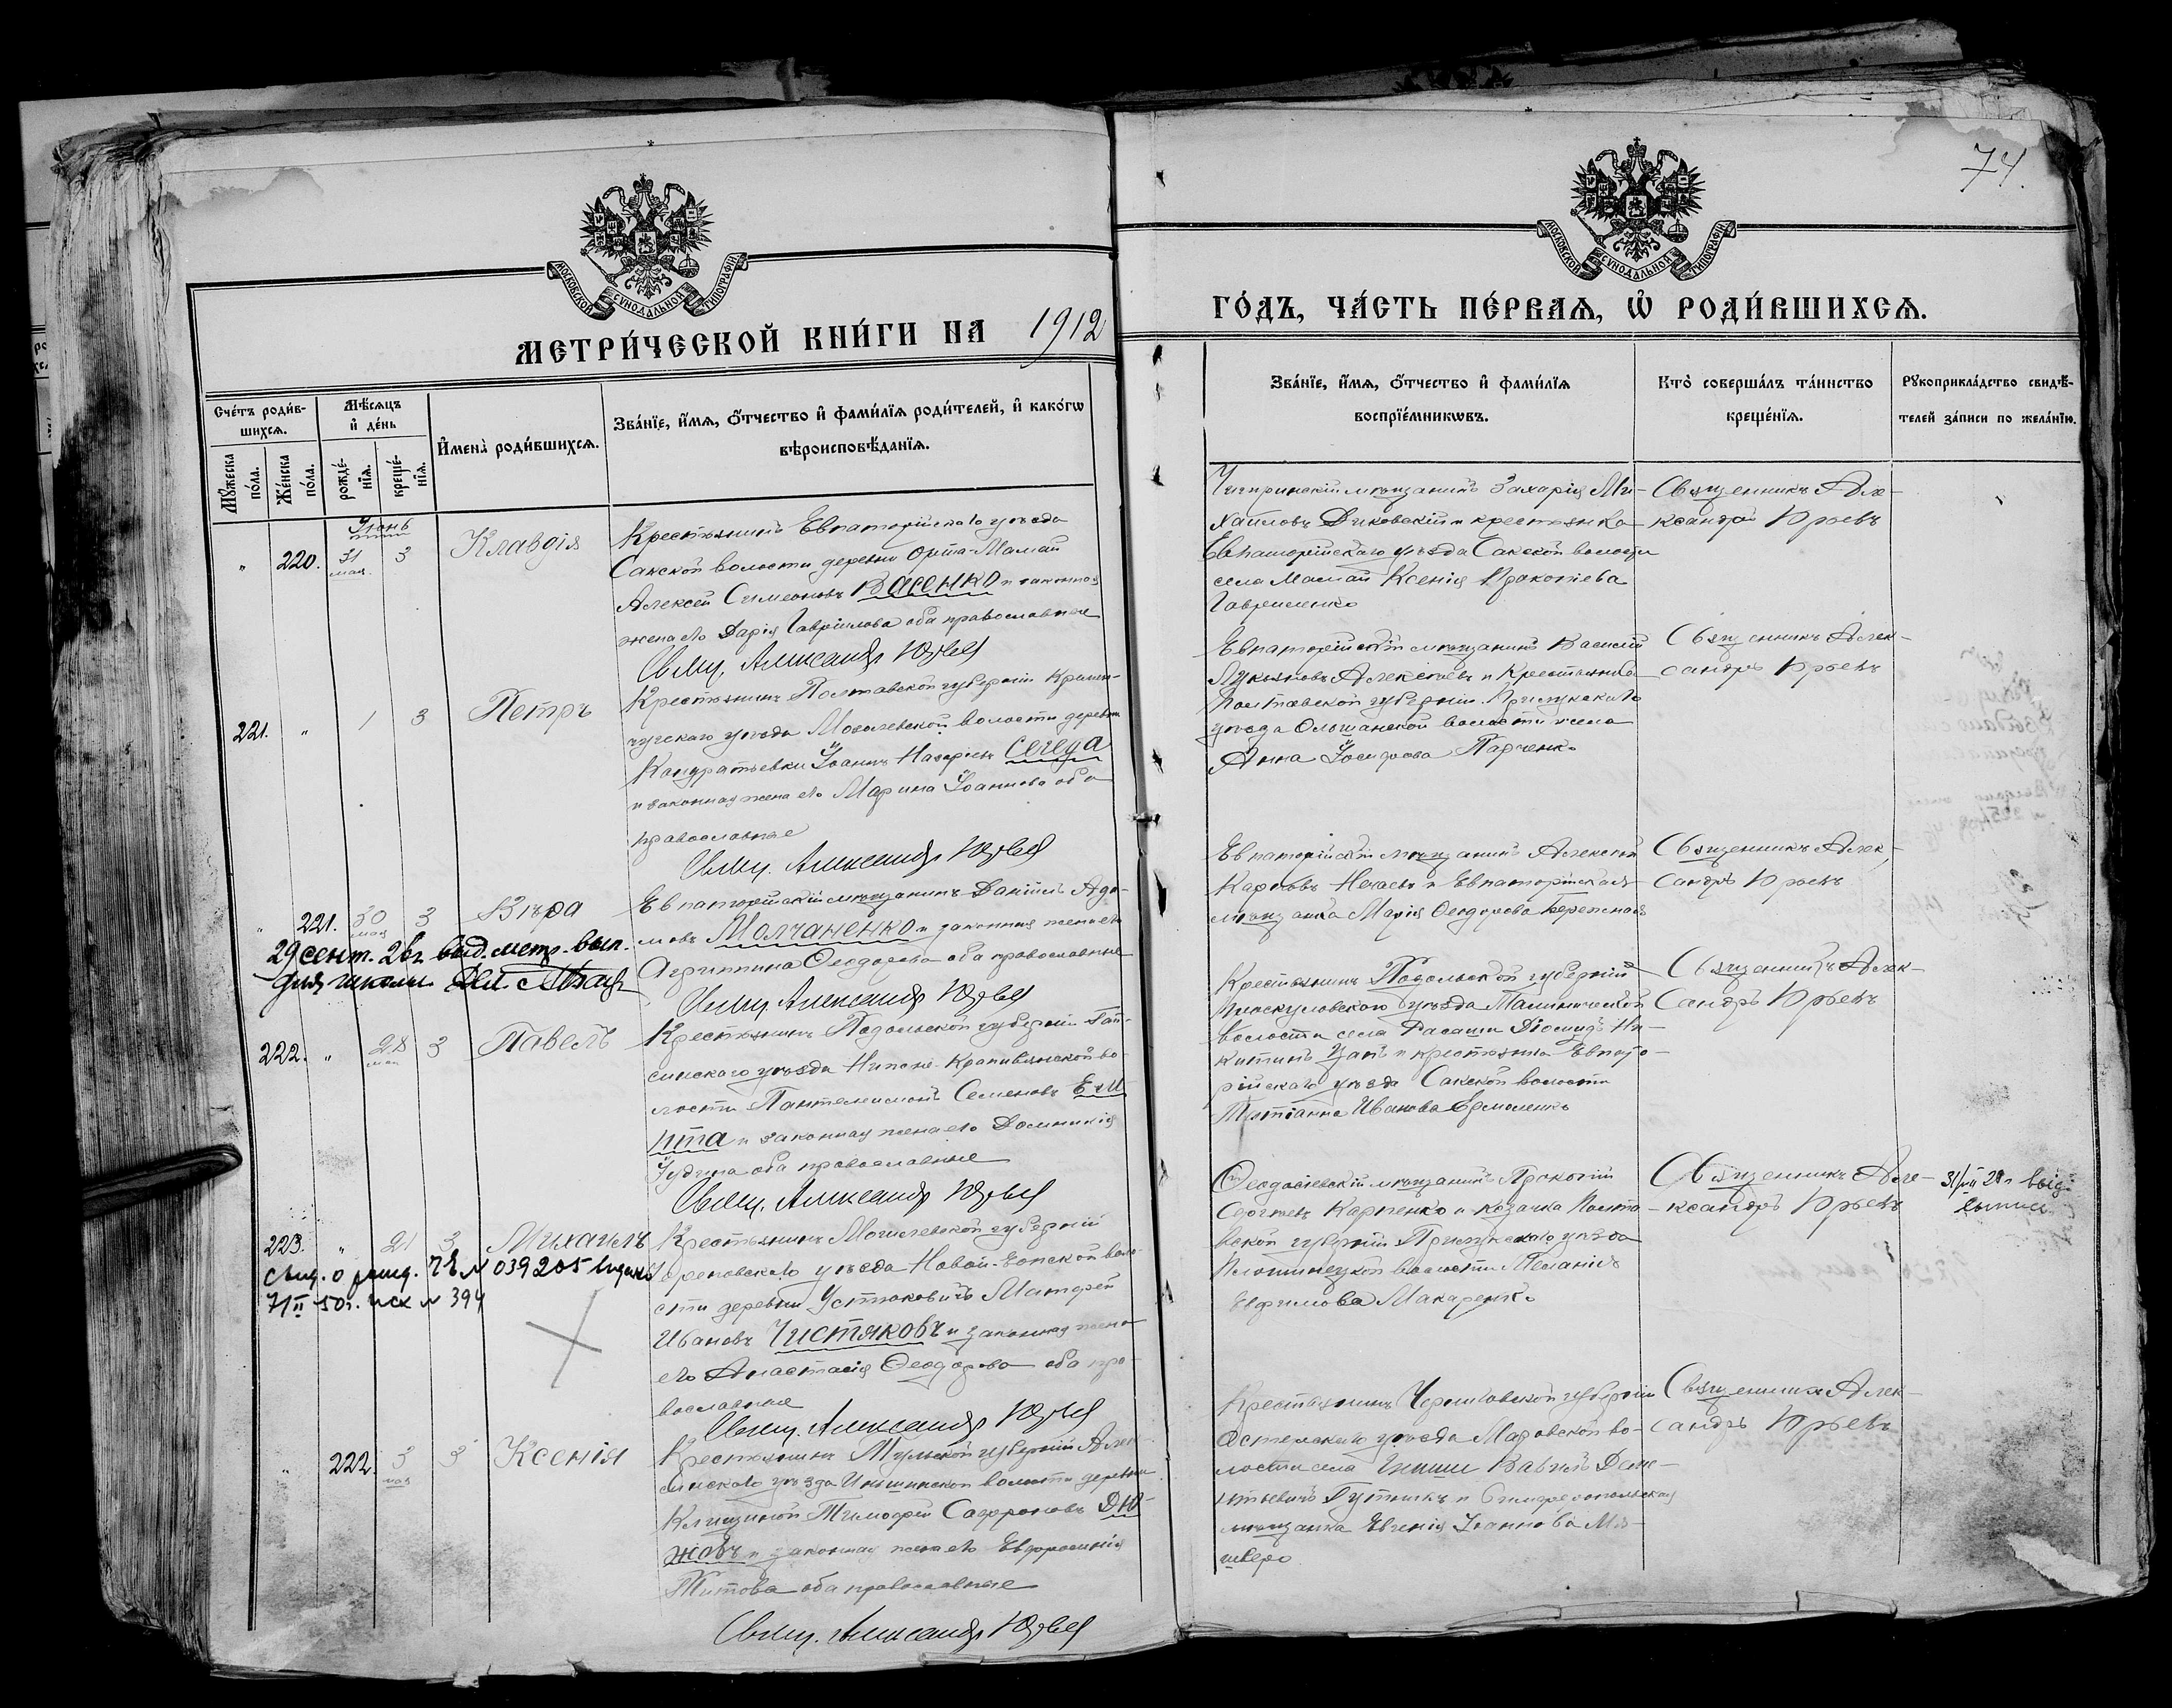 74.
МОСКОВСКОЙ СѴНОДАЛЬНОЙ ТИПОГРАФІИ
МОСКОВСКОЙ СѴНОДАЛЬНОЙ ТИПОГРАФІИ
МЕТРИ́ЧЕСКОЙ КНИ́ГИ НА 1912
ГО́ДЪ, ЧА́СТЬ ПЕ́РВАЯ, Ѽ РОДИ́ВШИХСЯ.
Сче́тъ роди́в-
шихся.
Мꙋ́жеска
по́ла.
Же́нска
по́ла.
Мѣ́сяцъ
и҆ де́нь
рожде́-
нїя.
креще́-
нїя.
И҆мена̀ роди́вшихся.
Зва́нїе, и҆́мя, ѻ҆́тчество и҆ фами́лїя роди́телей, и҆ како́гѡ
вѣроисповѣ́данїя.
Зва́нїе, и҆́мя, ѻ҆́тчество и҆ фами́лїя
воспрїе́мникѡвъ.
Кто̀ соверша́лъ та́инство
креще́нїя.
Рꙋкоприкла́дство свидѣ́-
телей за́писи по жела́нїю.
Іюнь
" 220. 31 мая. 3 Клавдія
Крестьянинъ Евпаторійскаго уѣзда
Сакской волости деревни Орта-Мамай
Алексей Симеоновъ Васенко и законная
жена его Дарія Гаврiилова оба православные
Свящ. Александр Юрьев
Чигиринскій мѣщанинъ Захарія Ми-
хаиловъ Диковскій и крестьянка
Евпаторійскаго уѣзда Сакской волости
села Мамай Ксенія Прокопіева
Гавриленко
Священникъ Але-
ксандръ Юрьевъ
221. " 1 3 Петръ
Крестьянинъ Полтавской губерніи Кремен-
чугскаго уѣзда волости деревни
Кондратьевки Іоаннъ Назаріевъ Сегеда
и законная жена его Марина Іоаннова оба
православные
Свящ. Александр Юрьев
Евпаторійскій мѣщанинъ Василій
Лукьяновъ Алексеевъ и Крестьянка
Полтавской губерніи Прилукскаго
уѣзда Ольшанской волости села
Анна Іосифова Парченко
Священникъ Алек-
сандръ Юрьевъ
" 221. 30 мая 3 Вѣра
29 сент. 26г. выд. метр. вып.
для школы.
Евпаторійскій мѣщанинъ Даніилъ Ада-
мовъ Молчаненко и законная жена его
Агриппина Ѳеодорова оба православные
Свящ. Александр Юрьев
Евпаторійскій мѣщанинъ Алексей
Карповъ Нечаевъ и Евпаторійская
мѣщанка Марія Ѳеодорова Бережная
Священникъ Алек-
сандръ Юрьевъ
222. " 28 мая 3 Павелъ
Крестьянинъ Подольской губерніи Гай-
синскаго уѣзда Нижне-Кропивянской во-
лости Пантелеимонъ Семеновъ
и законная жена его Домникія
Іудина оба православные
Свящ. Александр Юрьев
Крестьянинъ Подольской губерніи
Проскуровскаго уѣзда
волости села Діомидъ Ни-
китинъ и крестьянка Евпато-
рійскаго уѣзда Сакской волости
Татіанна Иванова Ермоленко
Священникъ Алек-
сандръ Юрьевъ
223. " 21 3 Михаилъ
Свид. о рожд. № 039205
50г. исх № 394
Крестьянинъ Могилевской губерніи
уѣзда Ново-Еопской воло-
сти деревни Устиновичъ Матфей
Ивановъ Чистяковъ и законная жена
его Анастасія Ѳеодорова оба пра-
вославные
Свящ. Александр Юрьев
Ѳеодосіевскій мѣщанинъ Прокопій
Сергѣевъ Карпенко и козачка Полта-
вской губерніи Прилукскаго уѣзда
волости Меланія
Евфимова Макаренко
Священникъ Але-
ксандръ Юрьевъ
выд.
выпись
" 222. 3 мая 3 Ксенія
Крестьянинъ Тульской губерніи Алек-
синскаго уѣзда волости деревни
Тимофей Софроновъ Дю-
жовъ и законная жена его Евфросинія
Титова оба православные
Свящ. Александр Юрьев
Крестьянинъ Черниговской губерніи
Остерскаго уѣзда Моровской во-
лости села Вавилъ
и Симферопольская
мѣщанка Евгенія Іоаннова
Священникъ Алек-
сандръ Юрьевъ